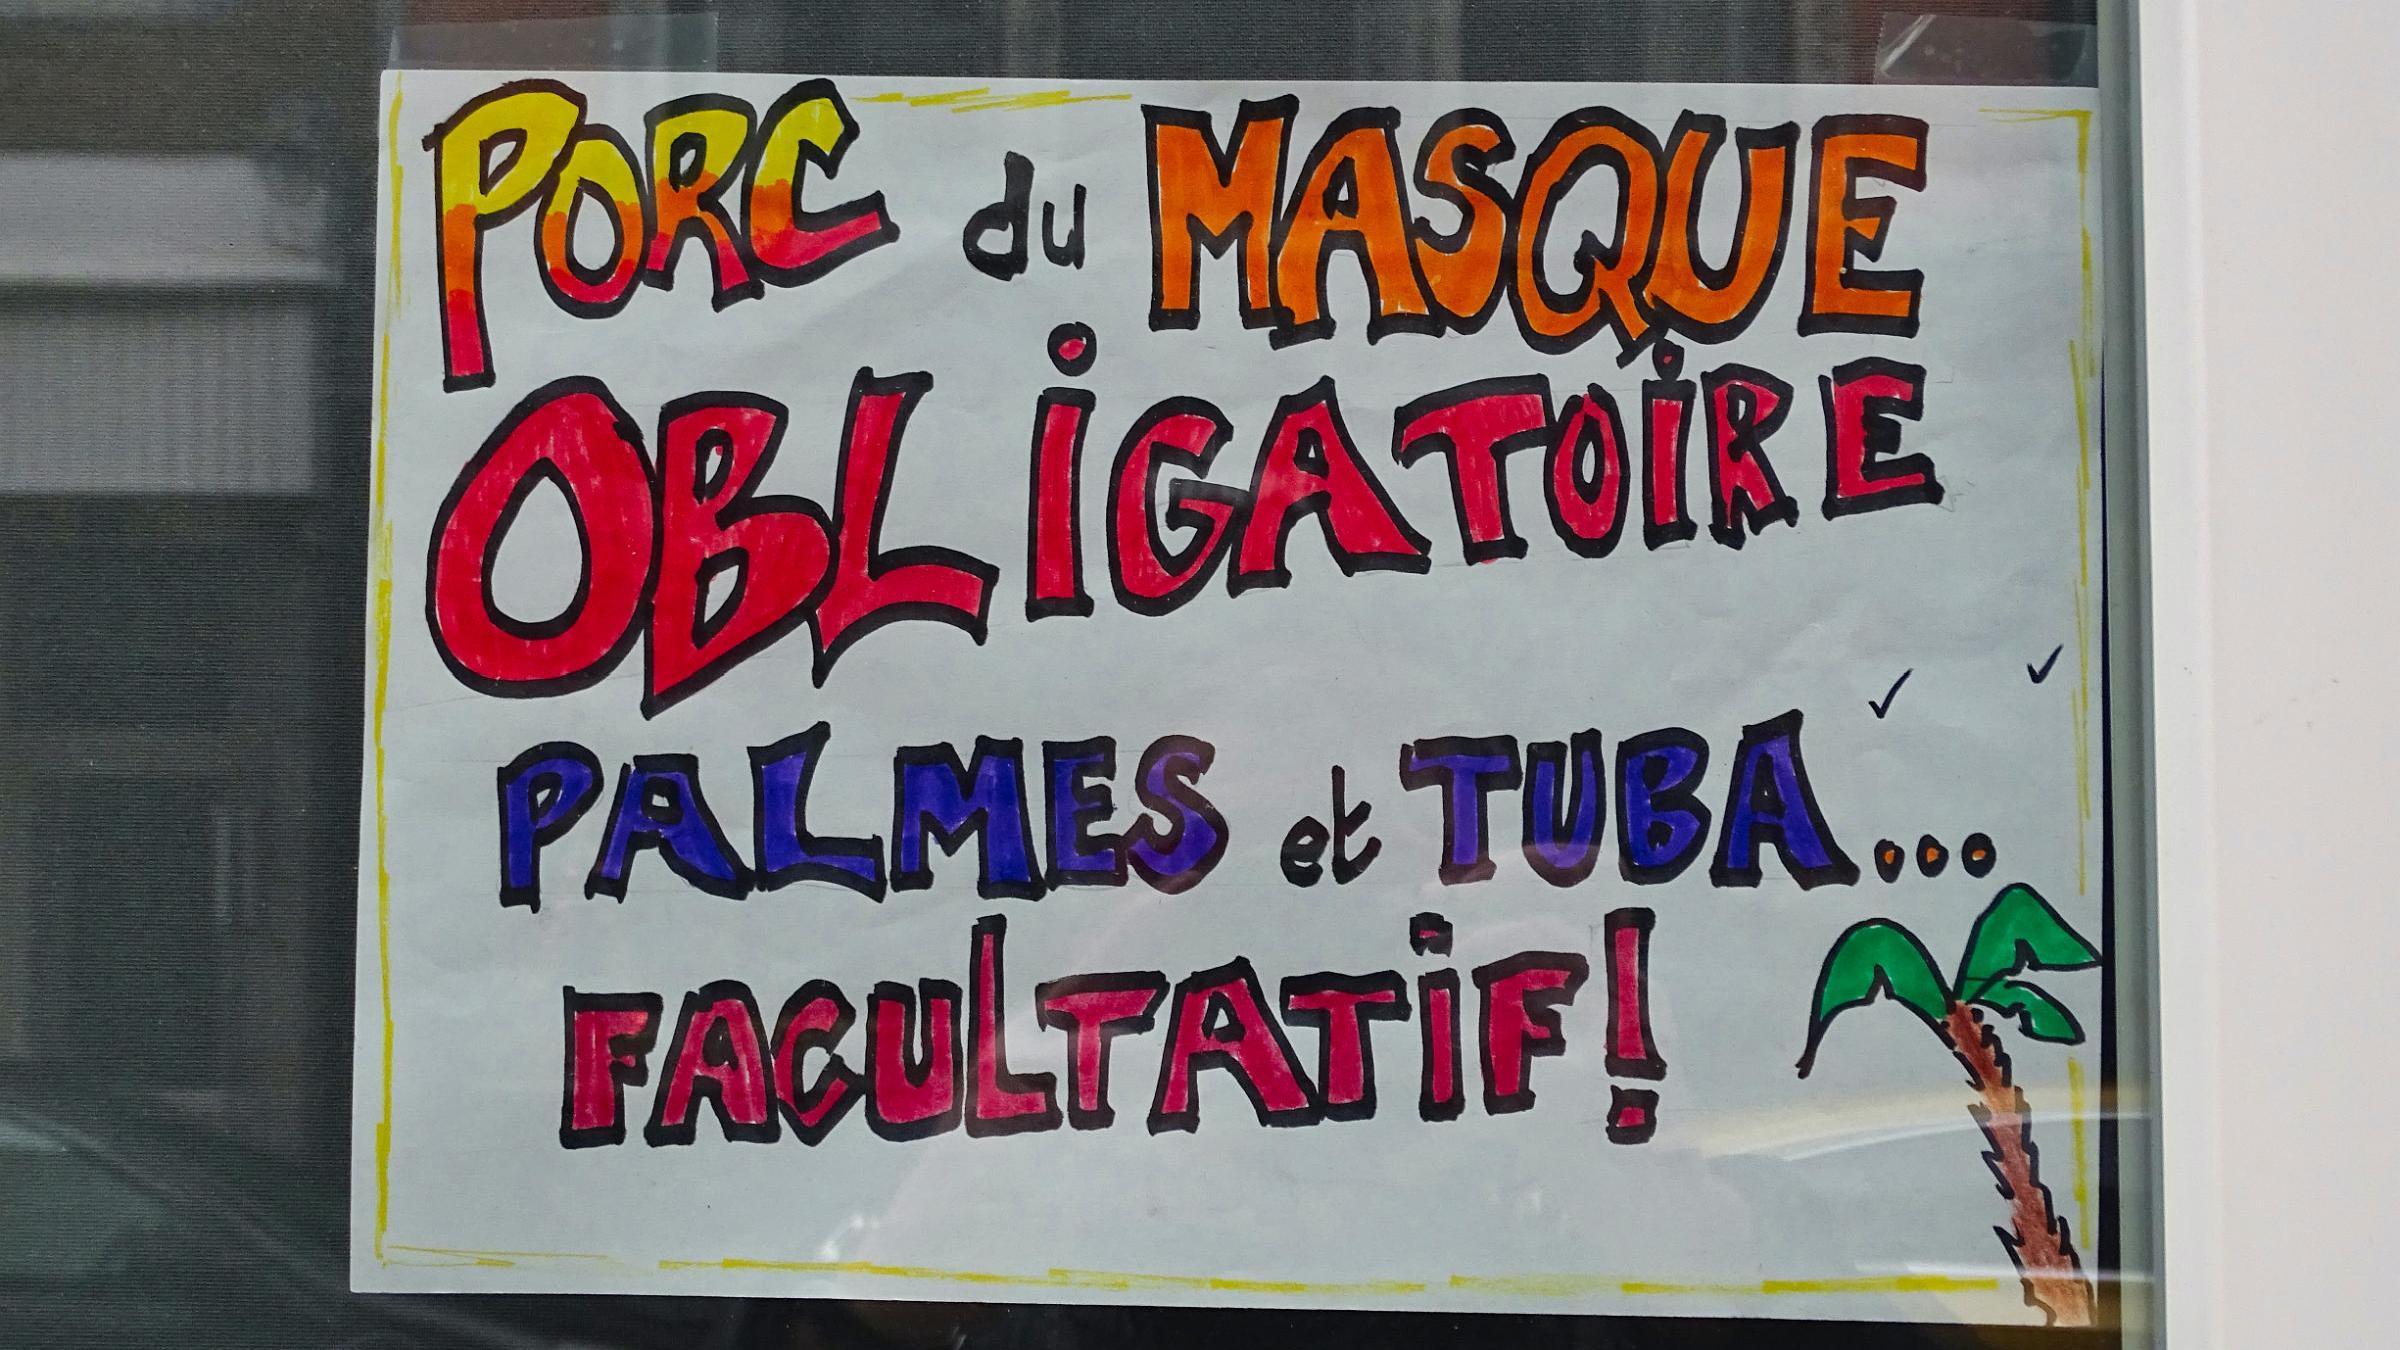 PORC du MASQUE
OBLiGATOiRE
PALMES et TUBA...
FACULTATiF!